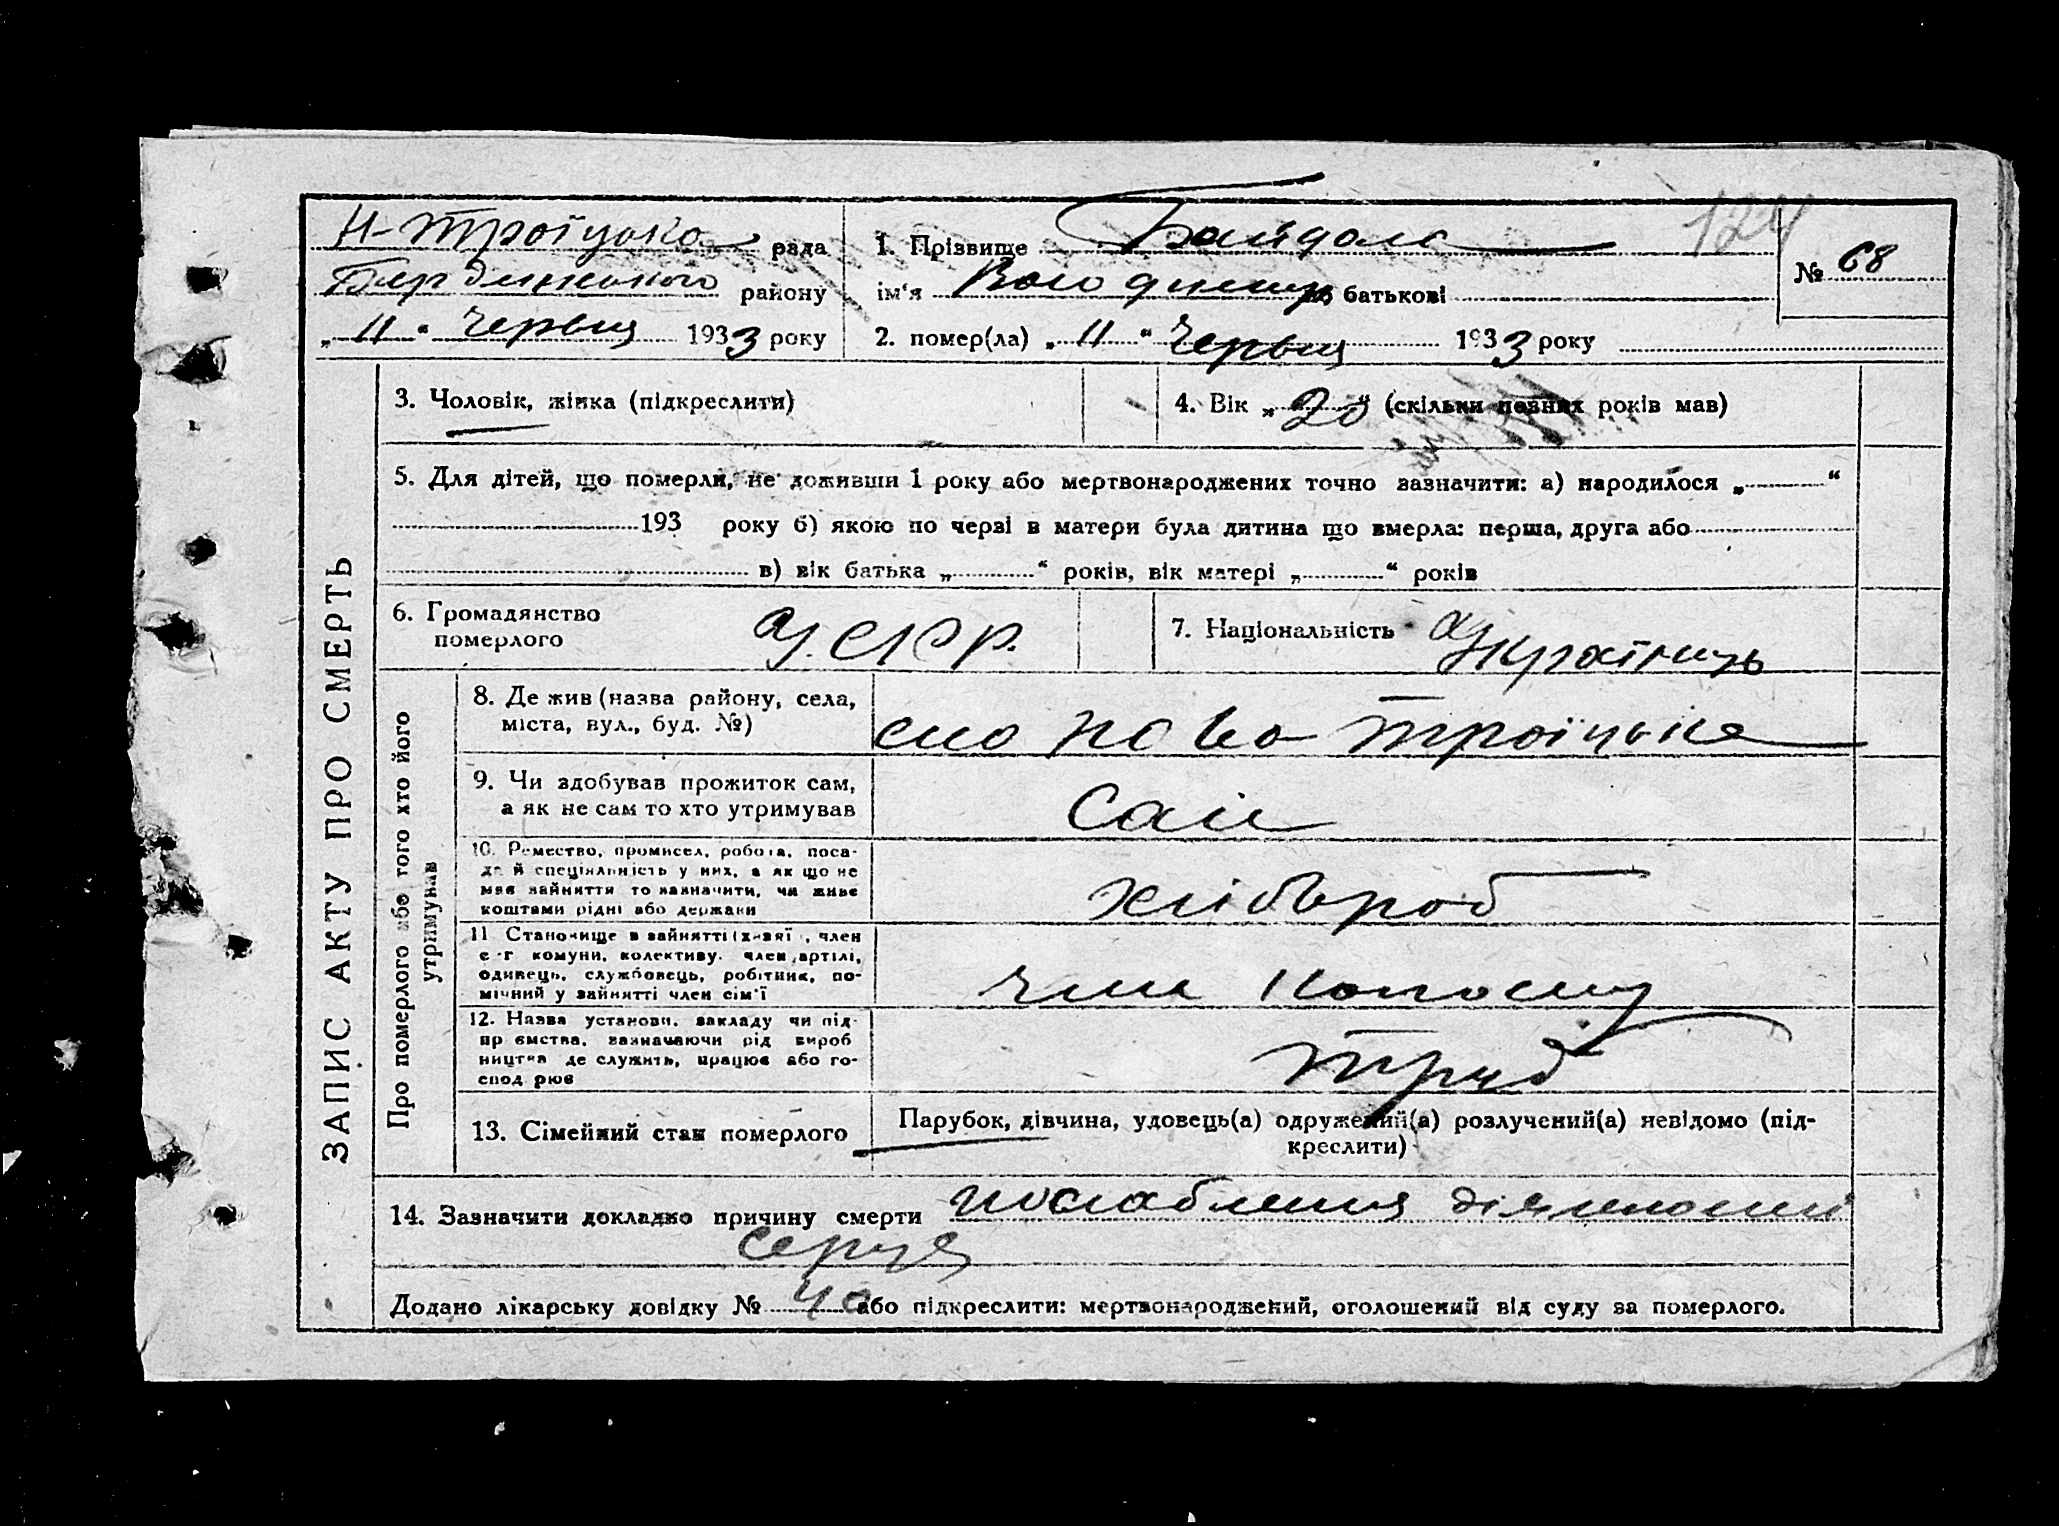 Н-Троїцька рада
Бердянського району
„ 11 “ Червня 1933 року
1. Прізвище Байдала
ім'я Володимир по батькові
124
№ 68
2. помер(ла) „ 11 “ Червня 1933 року
ЗАПИС АКТУ ПРО СМЕРТЬ
3. Чоловік, жінка (підкреслити)
4. Вік „ 20 “ (скільки повних років мав)
5. Для дітей, що померли, не доживши 1 року або мертвонароджених точно зазначити: а) народилося „ “
193 року б) якою по черзі в матери була дитина що вмерла: перша, друга або
в) вік батька „ “ років, вік матері „ “ років
6. Громадянство
померлого
У.С.Р.Р.
7. Національність Українець
Про померлого або того хто його
утримував
8. Де жив (назва району, села,
міста, вул., буд. №)
село Ново Троїцьке
9. Чи здобував прожиток сам,
а як не сам то хто утримував
Сам
10. Ремество, промисел, робота, поса-
да й спеціяльність у них, а як що не
мав зайняття то зазначити, чи живе
коштами рідні або держави
хлібороб
11. Становище в зайнятті (хазяї, член
с-г комуни, колективу, член артілі,
одинець, службовець, робітник, по-
мічний у зайнятті член сім'ї
член колгоспу
12. Назва установи, закладу чи під-
приємства, зазначаючи рід вироб
ництва де служить, працює або го-
сподрює
Труд
13. Сімейний стан померлого
Парубок, дівчина, удовець(а) одружений(а) розлучений(а) невідомо (під-
креслити)
14. Зазначити докладно причину смерти послаблення діяльности
серця
Додано лікарську довідку № 40 або підкреслити: мертвонароджений, оголошений від суду за померлого.